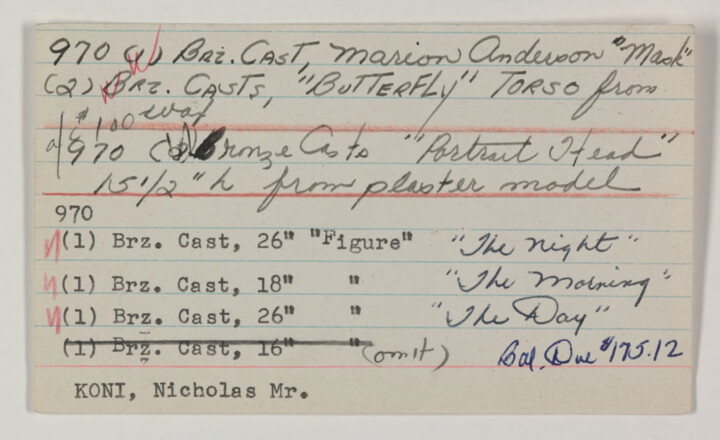 970 (1) Brz. Cast, Marion Anderson "Mask"
(2) Brz. Casts, "Butterfly" Torso from
$100 wax
970 Bronze Casts "Portrait Head"
15 1/2" h from plaster model
970
(1) Brz. Cast, 26" "Figure" "The Night"
(1) Brz. Cast, 18" " "The Morning"
(1) Brz. Cast, 26" " "The Day"
(1) Brz. Cast, 16" " (omit) Bal. Due $175.12
KONI, Nicholas Mr.